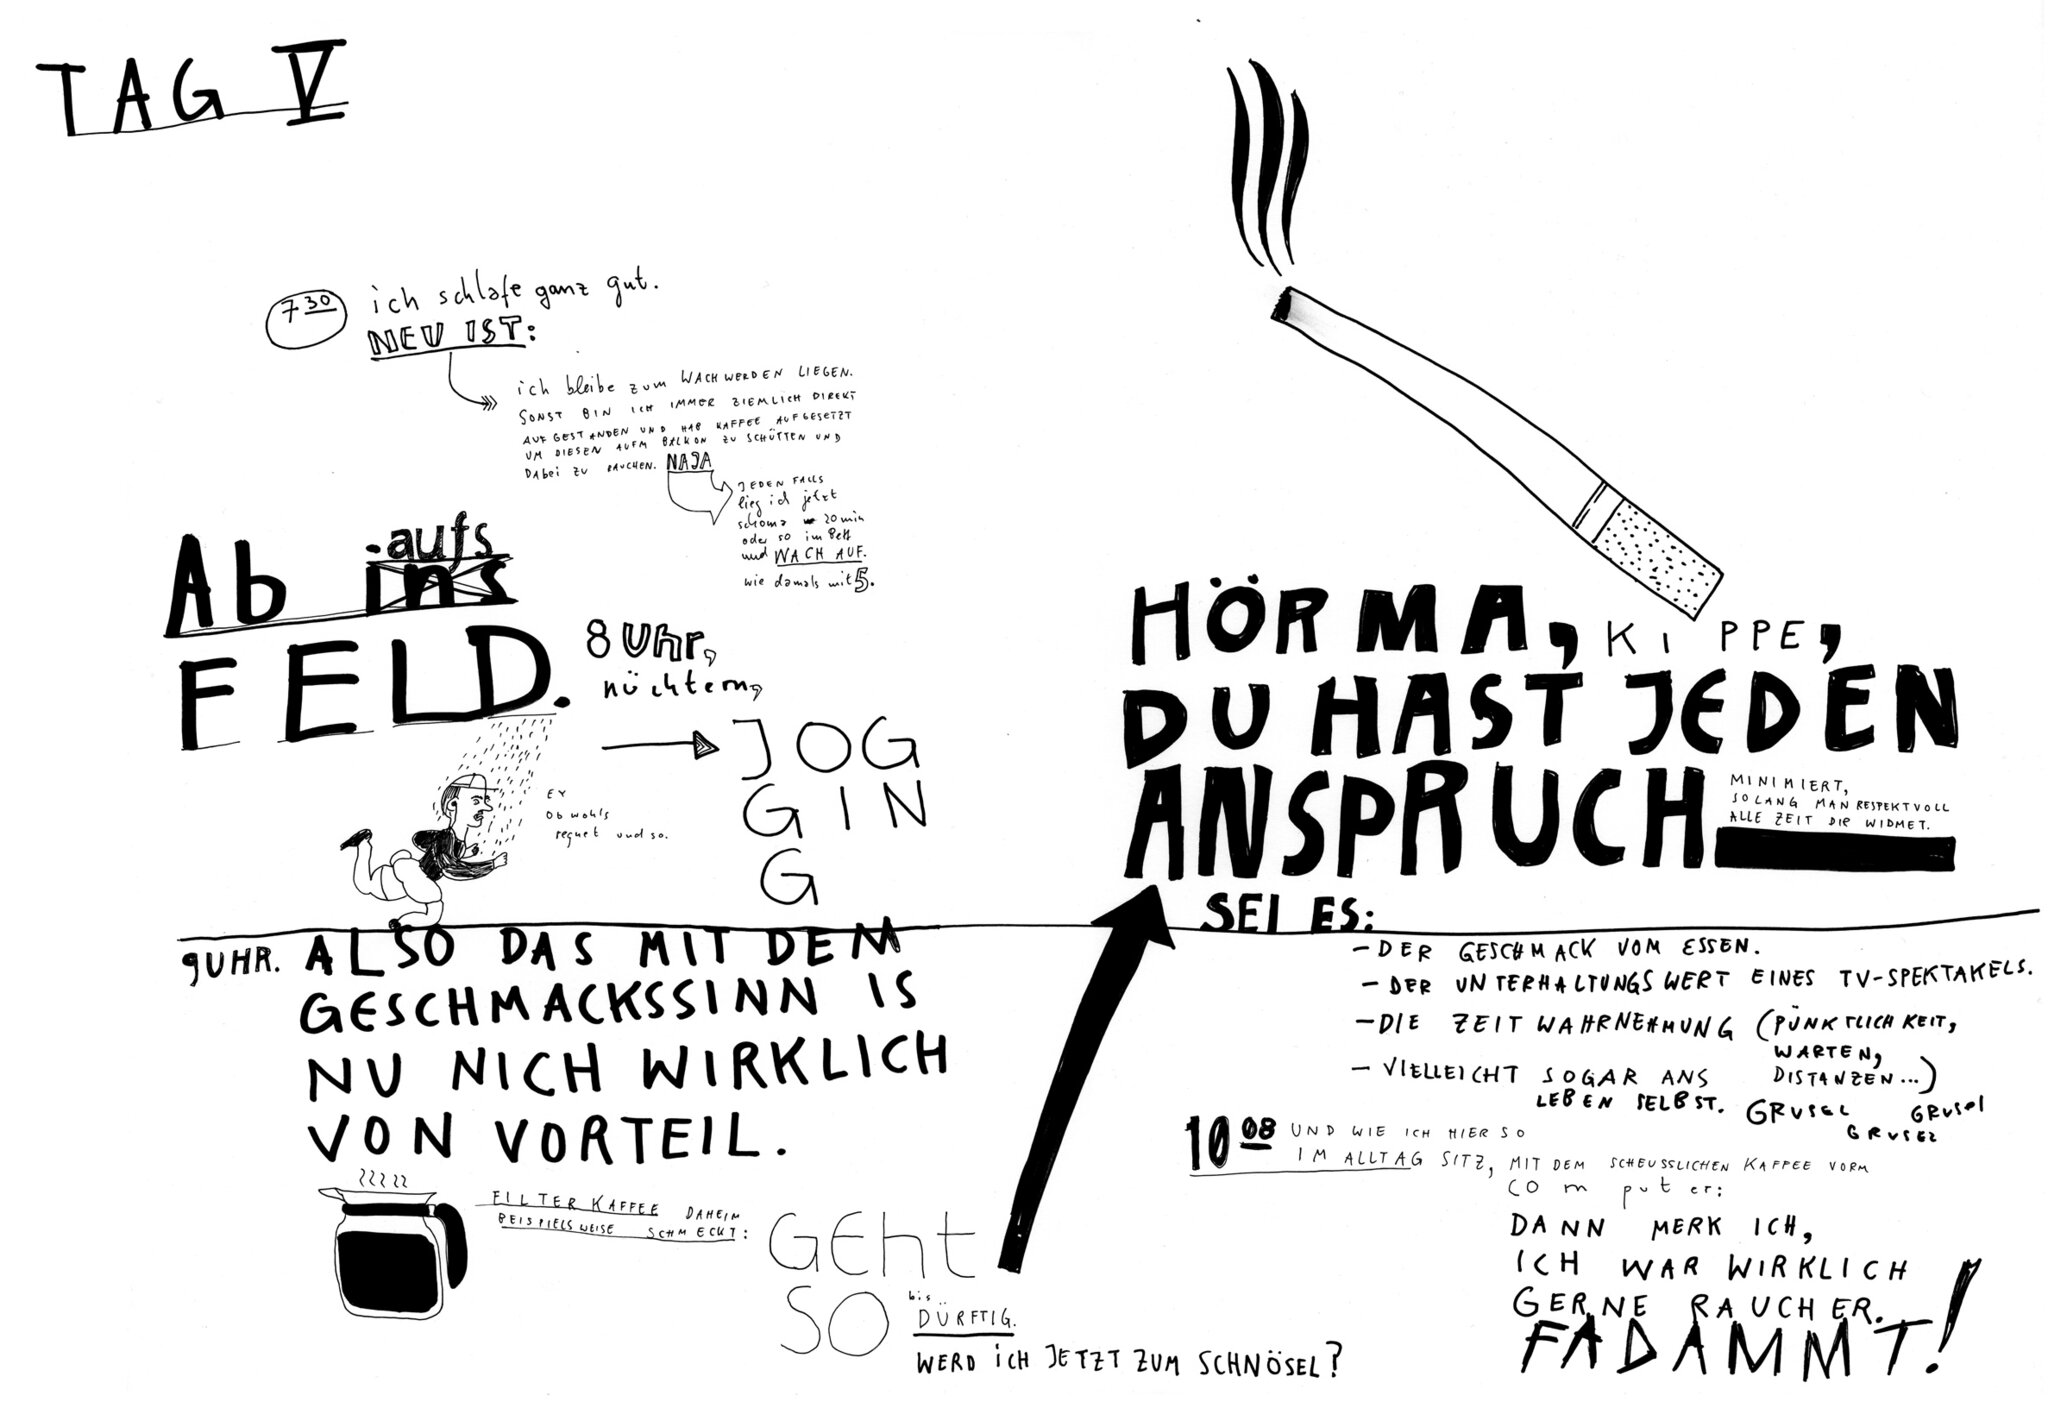 TAG V
7 30 ich schlafe ganz gut.
NEU IST:
ich bleibe zum WACHWERDEN LIEGEN.
SONST BIN ICH IMMER ZIEMLICH DIREKT
AUFGESTANDEN UND HAB KAFFEE AUFGESETZT
UM DIESEN AUFM BALKON ZU SCHÜTTEN UND
DABei ZU RAUCHEN. NAJA
JEDEN FALLS
lieg ich jetzt
schoma 20 min
oder so im Bett
und WACH AUF.
wie damals mit 5.
Ab ins aufs
FELD.
8 Uhr,
nüchtern,
JOG
GIN
G
EY
Obwohls
regnet und so.
9 UHR. ALSO DAS MIT DEM
GESCHMACKSSINN IS
NU NICH WIRKLICH
VON VORTEIL.
FILTERKAFFEE DAHEIM
BEISPIELSWEISE SCHMECKT:
GEht
SO bis
DÜRFTIG.
WERD ICH JETZT ZUM SCHNÖSEL?
HÖR MA, KIPPE,
DU HAST JEDEN
ANSPRUCH
MINIMIERT,
SOLANG MAN RESPEKTVOLL
ALLE ZEIT DIR WIDMET.
SEI ES:
- DER GESCHMACK VOM ESSEN.
- DER UNTERHALTUNGSWERT EINES TV-SPEKTAKELS.
- DIE ZEITWAHRNEHMUNG (PÜNKTLICHKEIT,
WARTEN,
DISTANZEN...)
- VIELLEICHT SOGAR ANS
LEBEN SELBST. GRUSEL GRUSEL
GRUSEL
10 08 UND WIE ICH HIER SO
IM ALLTAG SITZ, MIT DEM SCHEUSSLICHEN KAFFEE VORM
COmputer:
DANN MERK ICH,
ICH WAR WIRKLICH
GERNE RAUCHER.
FADAMMT!